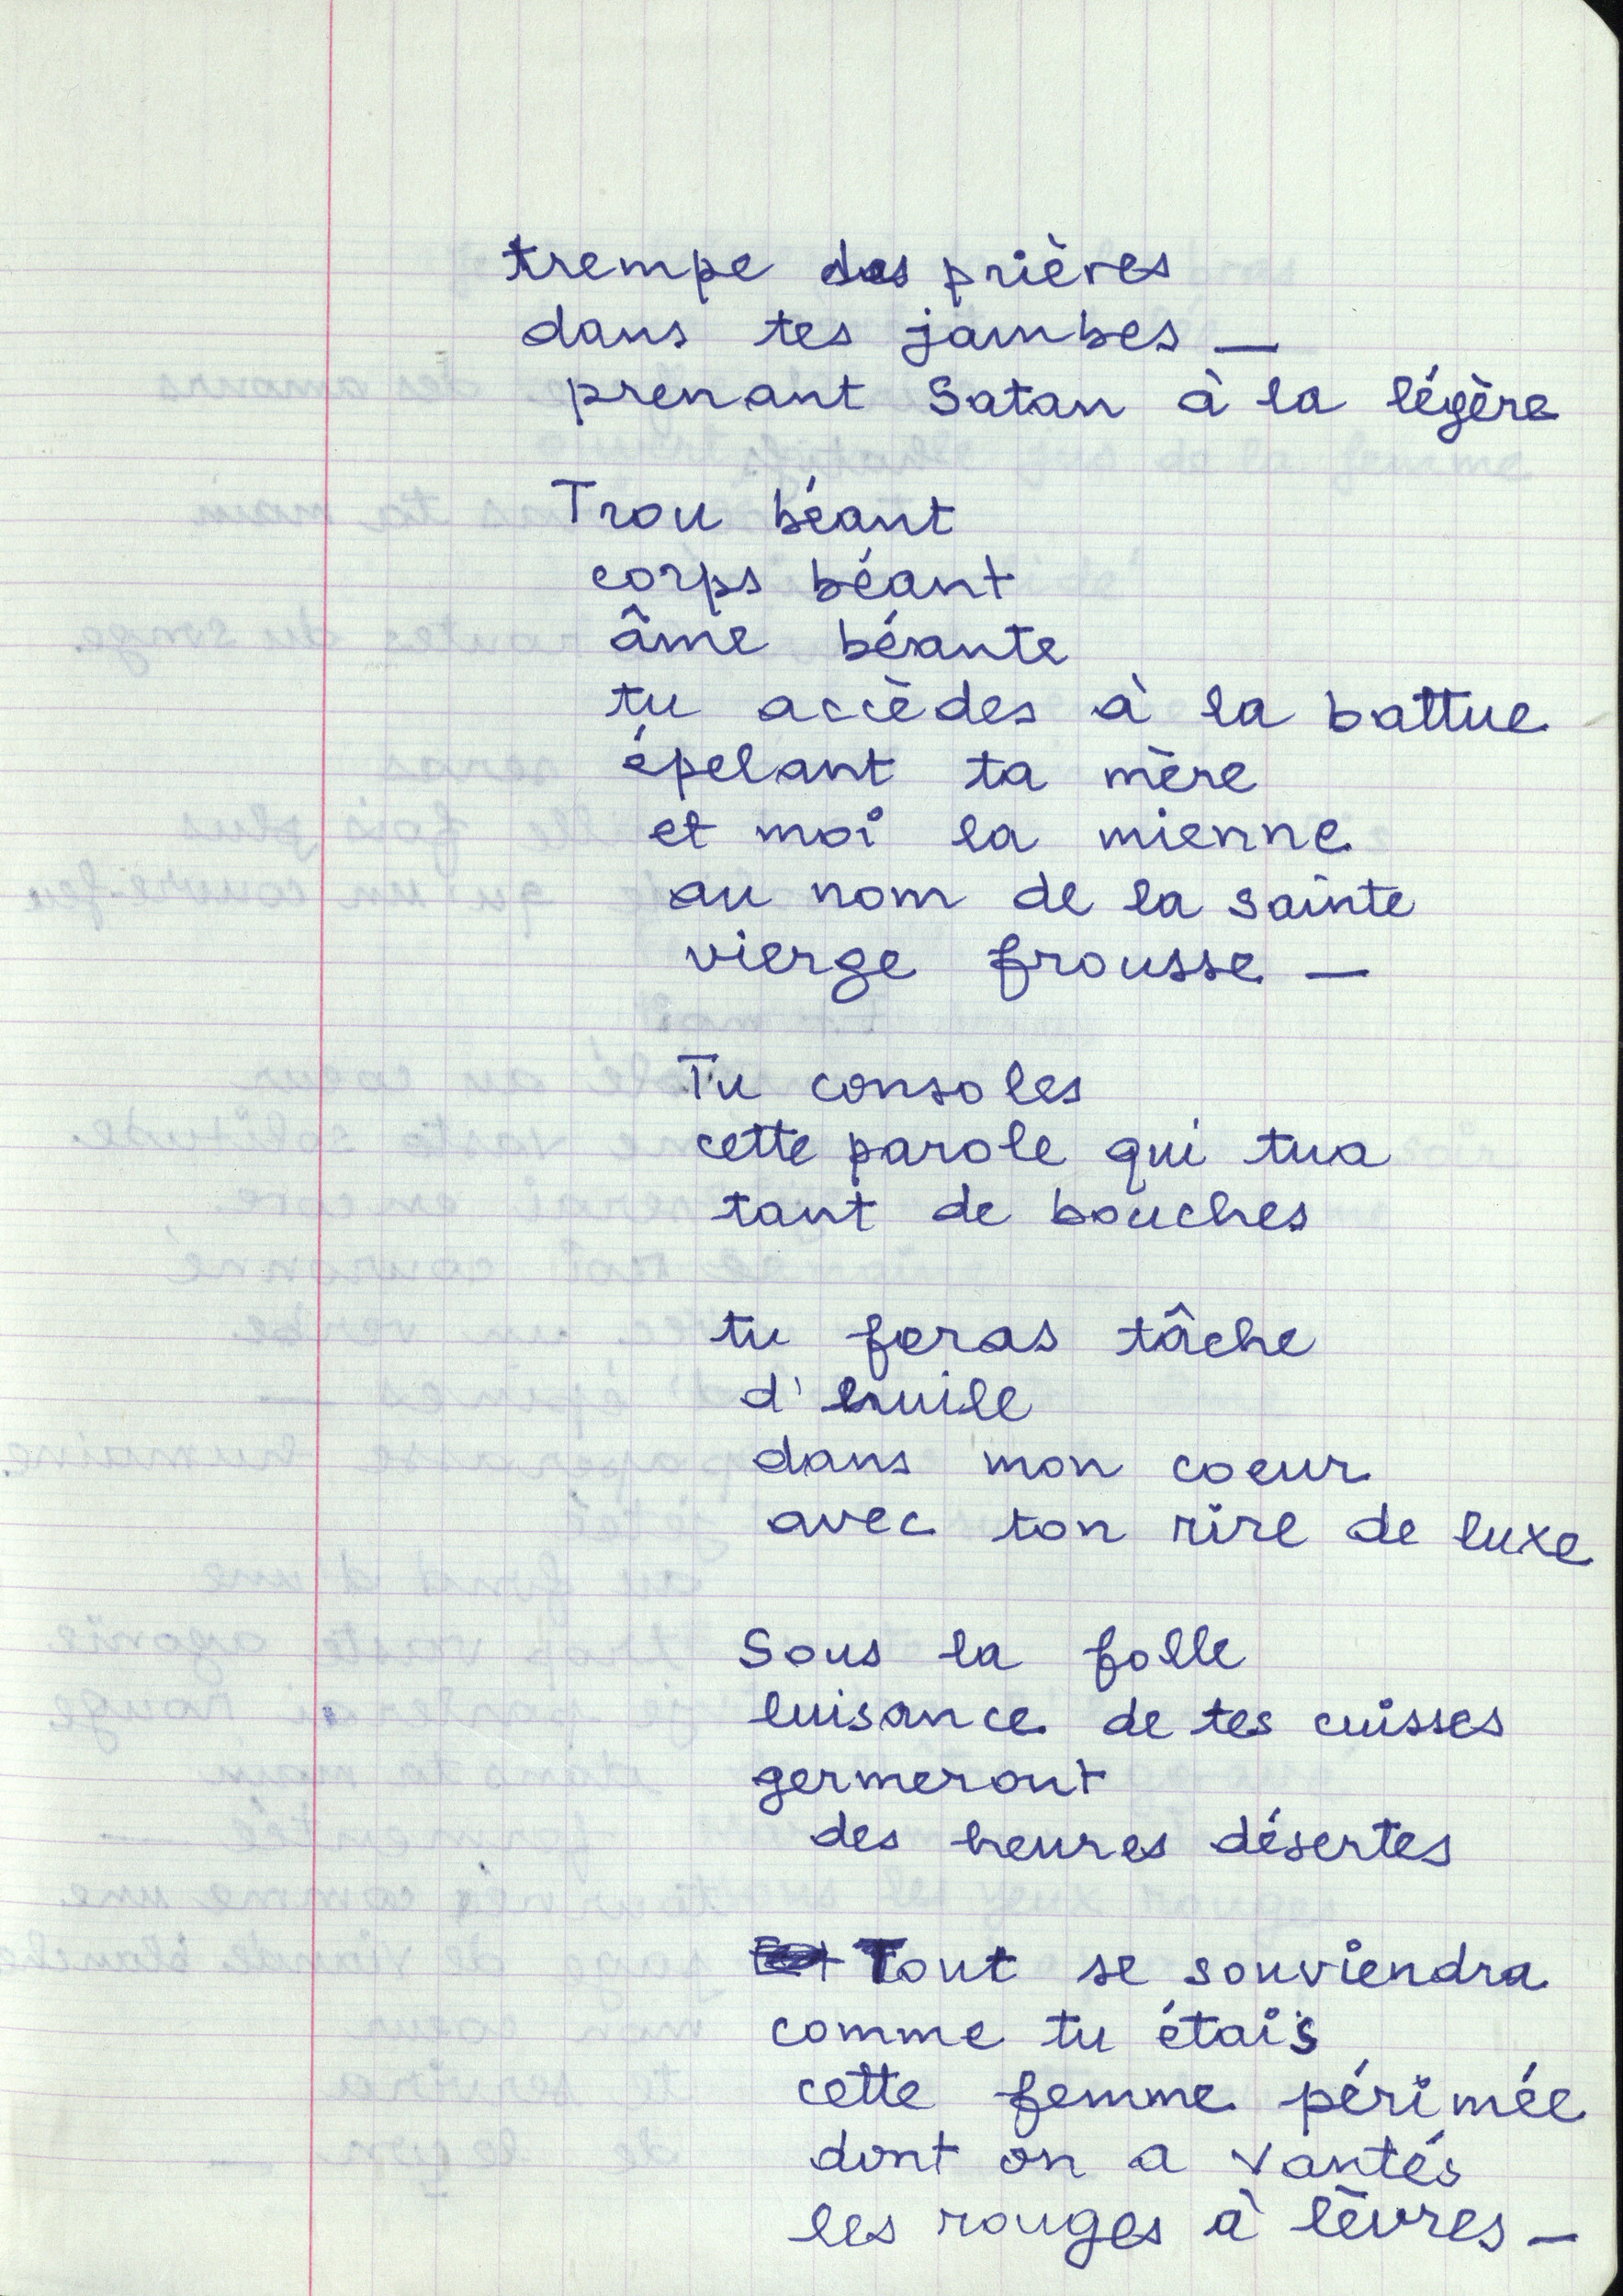 trempe des prières
dans tes jambes —
prenant Satan à la légère
Trou béant
corps béant
âme béante
tu accèdes à la battue
épelant ta mère
et moi la mienne
au nom de la sainte
vierge frousse —
Tu consoles
cette parole qui tua
tant de bouches
tu feras tâche
d'huile
dans mon coeur
avec ton rire de luxe
Sous la folle
luisance de tes cuisses
germeront
des heures désertes
Tout se souviendra
comme tu étais
cette femme périmée
dont on a vantés
les rouges à lèvres —